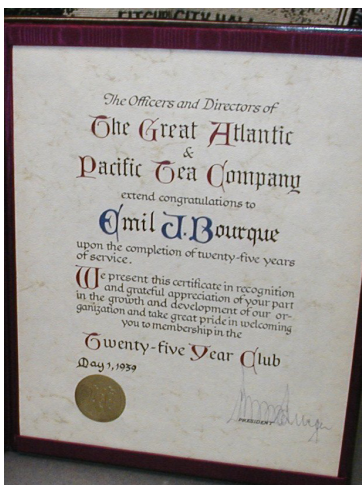 FITCHBURG CITY HALL
The Officers and Directors of
The Great Atlantic
&
Pacific Tea Company
extend congratulations to
Emil J. Bourque
upon the completion of twenty-five years
of service.
We present this certificate in recognition
and grateful appreciation of your part
in the growth and development of our or-
ganization and take great pride in welcoming
you to membership in the
Twenty-five Year Club
May 1, 1939
PRESIDENT